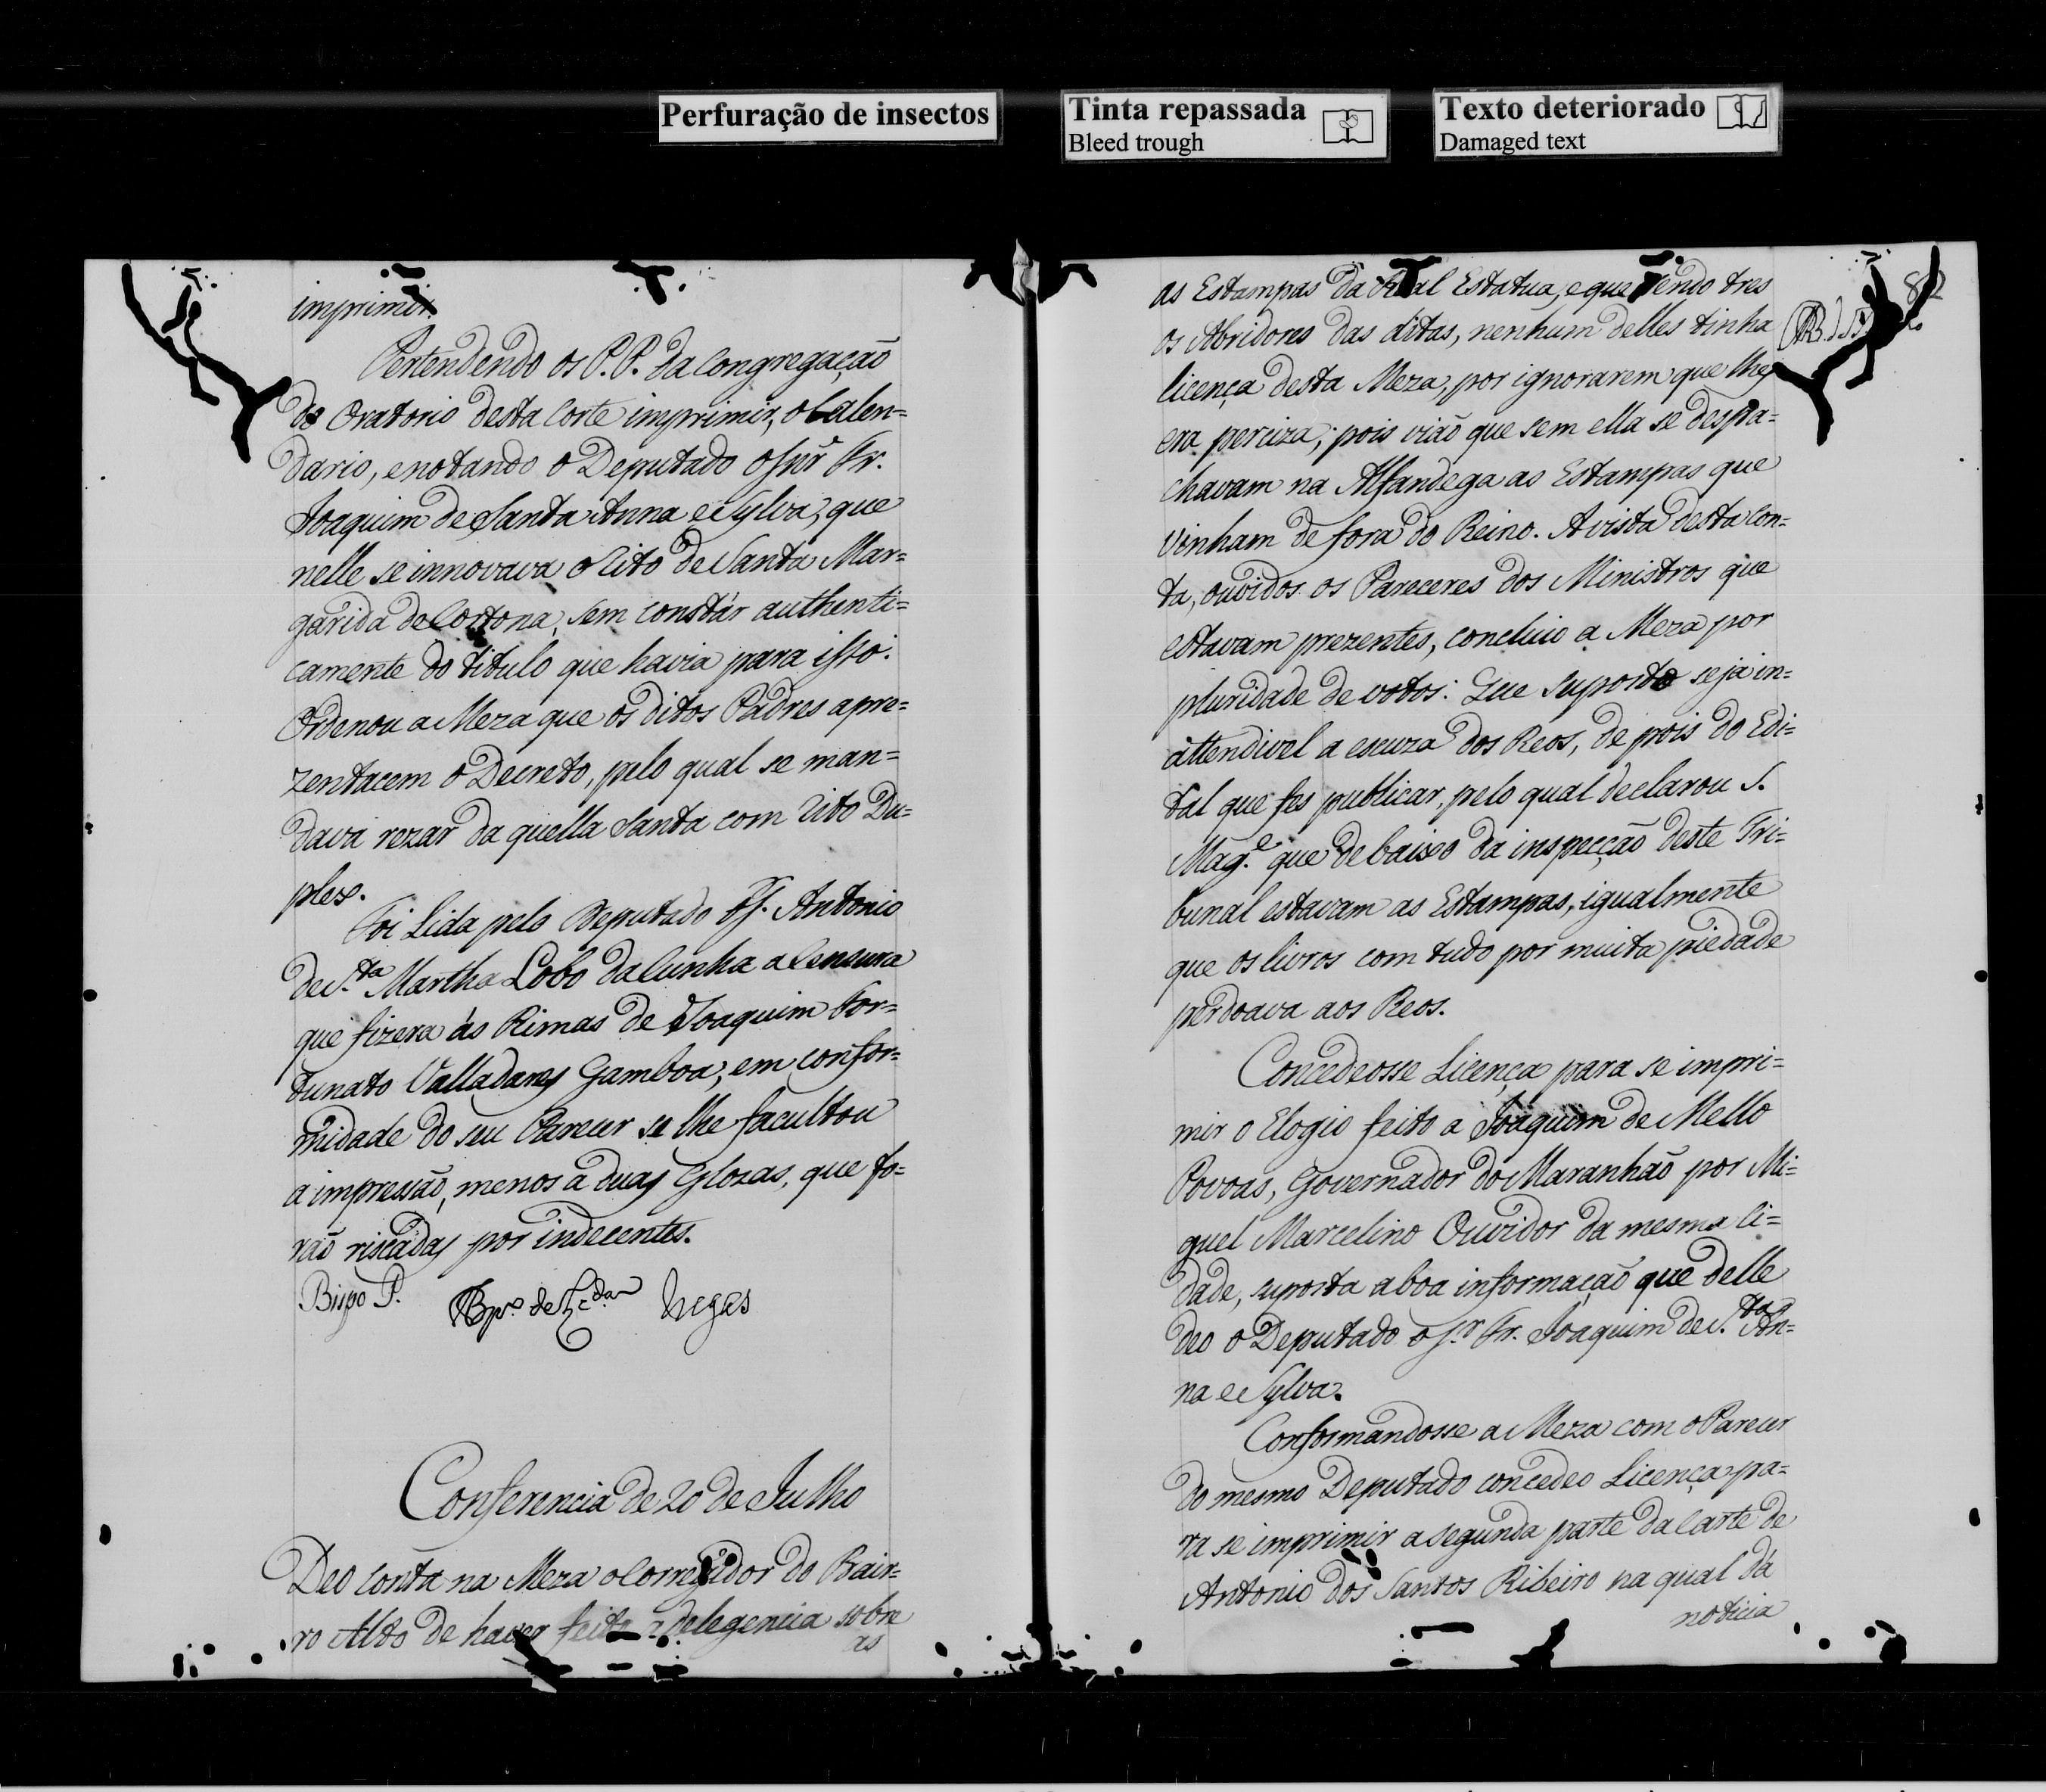 Perfuração de insectos
Tinta repassada
Bleed trough
Texto deteriorado
Damaged text
imprimir.
Pertendendo os P.P. da Congregação
do Oratorio desta Corte imprimir, o Calen=
dario, e notando o Deputado o Snr Fr.
Joaquim de Santa Anna e Sylva, que
nelle se innovava o Rito de Santa Mar=
garida de Cortona, sem constár authenti=
camente do titulo que havia para isso:
Ordenou a Meza que os ditos Padres apre=
zentacem o Decreto, pelo qual se man=
dava rezar da quella Santa com Rito Du=
plex.
Foi Lida pelo Deputado Fr. Antonio
de S.ta Martha Lobo da Cunha a Censura
que fizera ás Rimas de Joaquim For=
tunato Valladares Gamboa, em confor=
midade do seu Parecer se lhe facultou
a impressão, menos a duas Glozas, que fo=
rão riscadas por indecentes.
Bispo P.
Conferencia de 20 de Julho
Deo conta na Meza o Corregidor do Bair=
ro Alto de haver feito a delegencia sobre
as
82
as Estampas da Real Estatua, e que sendo tres
os Abridores das ditas, nenhum delles tinha
licença desta Meza, por ignorarem que lhes
era perciza; pois vião que sem ella se despa=
chavam na Alfandega as Estampas que
vinham de fora do Reino. A vista desta Con=
ta, ouvidos os Pareceres dos Ministros que
estavam prezentes, concluio a Meza por
pluridade de votos: Que suposto seja in=
attendivel a escuza dos Reos, de pois do Edi=
tal que fes publicar, pelo qual declarou S.
Mag.e que debaixo da inspecção deste Tri=
bunal estavam as Estampas, igualmente
que os livros com tudo por muita piedade
perdoava aos Reos.
Concedeosse Licença para se impri=
mir o Elogio feito a Joaquim de Mello
Povoas, Governador do Maranhão por Mi=
guel Marcelino Ouvidor da mesma Ci=
dade, suposta a boa informação que delle
deo o Deputado o S.r Fr. Joaquim de S.ta An=
na e Sylva.
Conformandosse a Meza com o Parecer
do mesmo Deputado concedeo Licença pa=
ra se imprimir a segunda parte da Carte de
Antonio dos Santos Ribeiro na qual dá
noticia